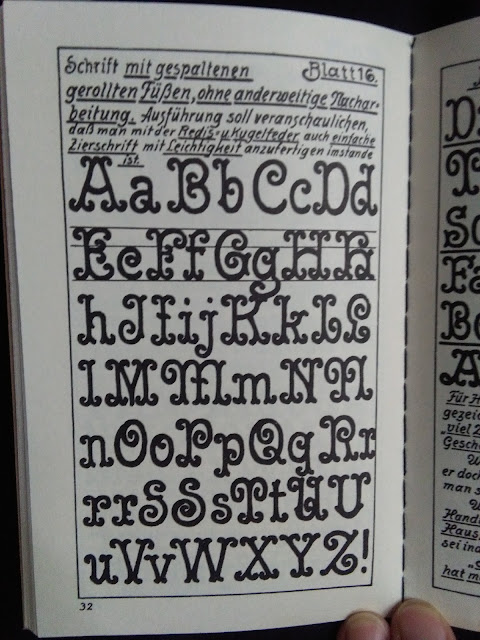 Schrift mit gespaltenen Blatt 16.
gerollten Füßen, ohne anderweitige Nachar-
beitung. Ausführung soll veranschaulichen,
daß man mit der Redis- u. Kugelfeder, auch einfache
Zierschrift mit Leichtigkeit anzufertigen imstande
ist.
AaBbCcDd
EeFfGgHH
hJIijKkLL
lMMmNN
nOoPpQqRr
rrSSsTtUU
uVvWXYZ!
32
D
T
S
Fa
B
A
Für H
gezei
„viel
Gesch
W
er doch
man s
W
Hand
Haus
sei ind
hat m